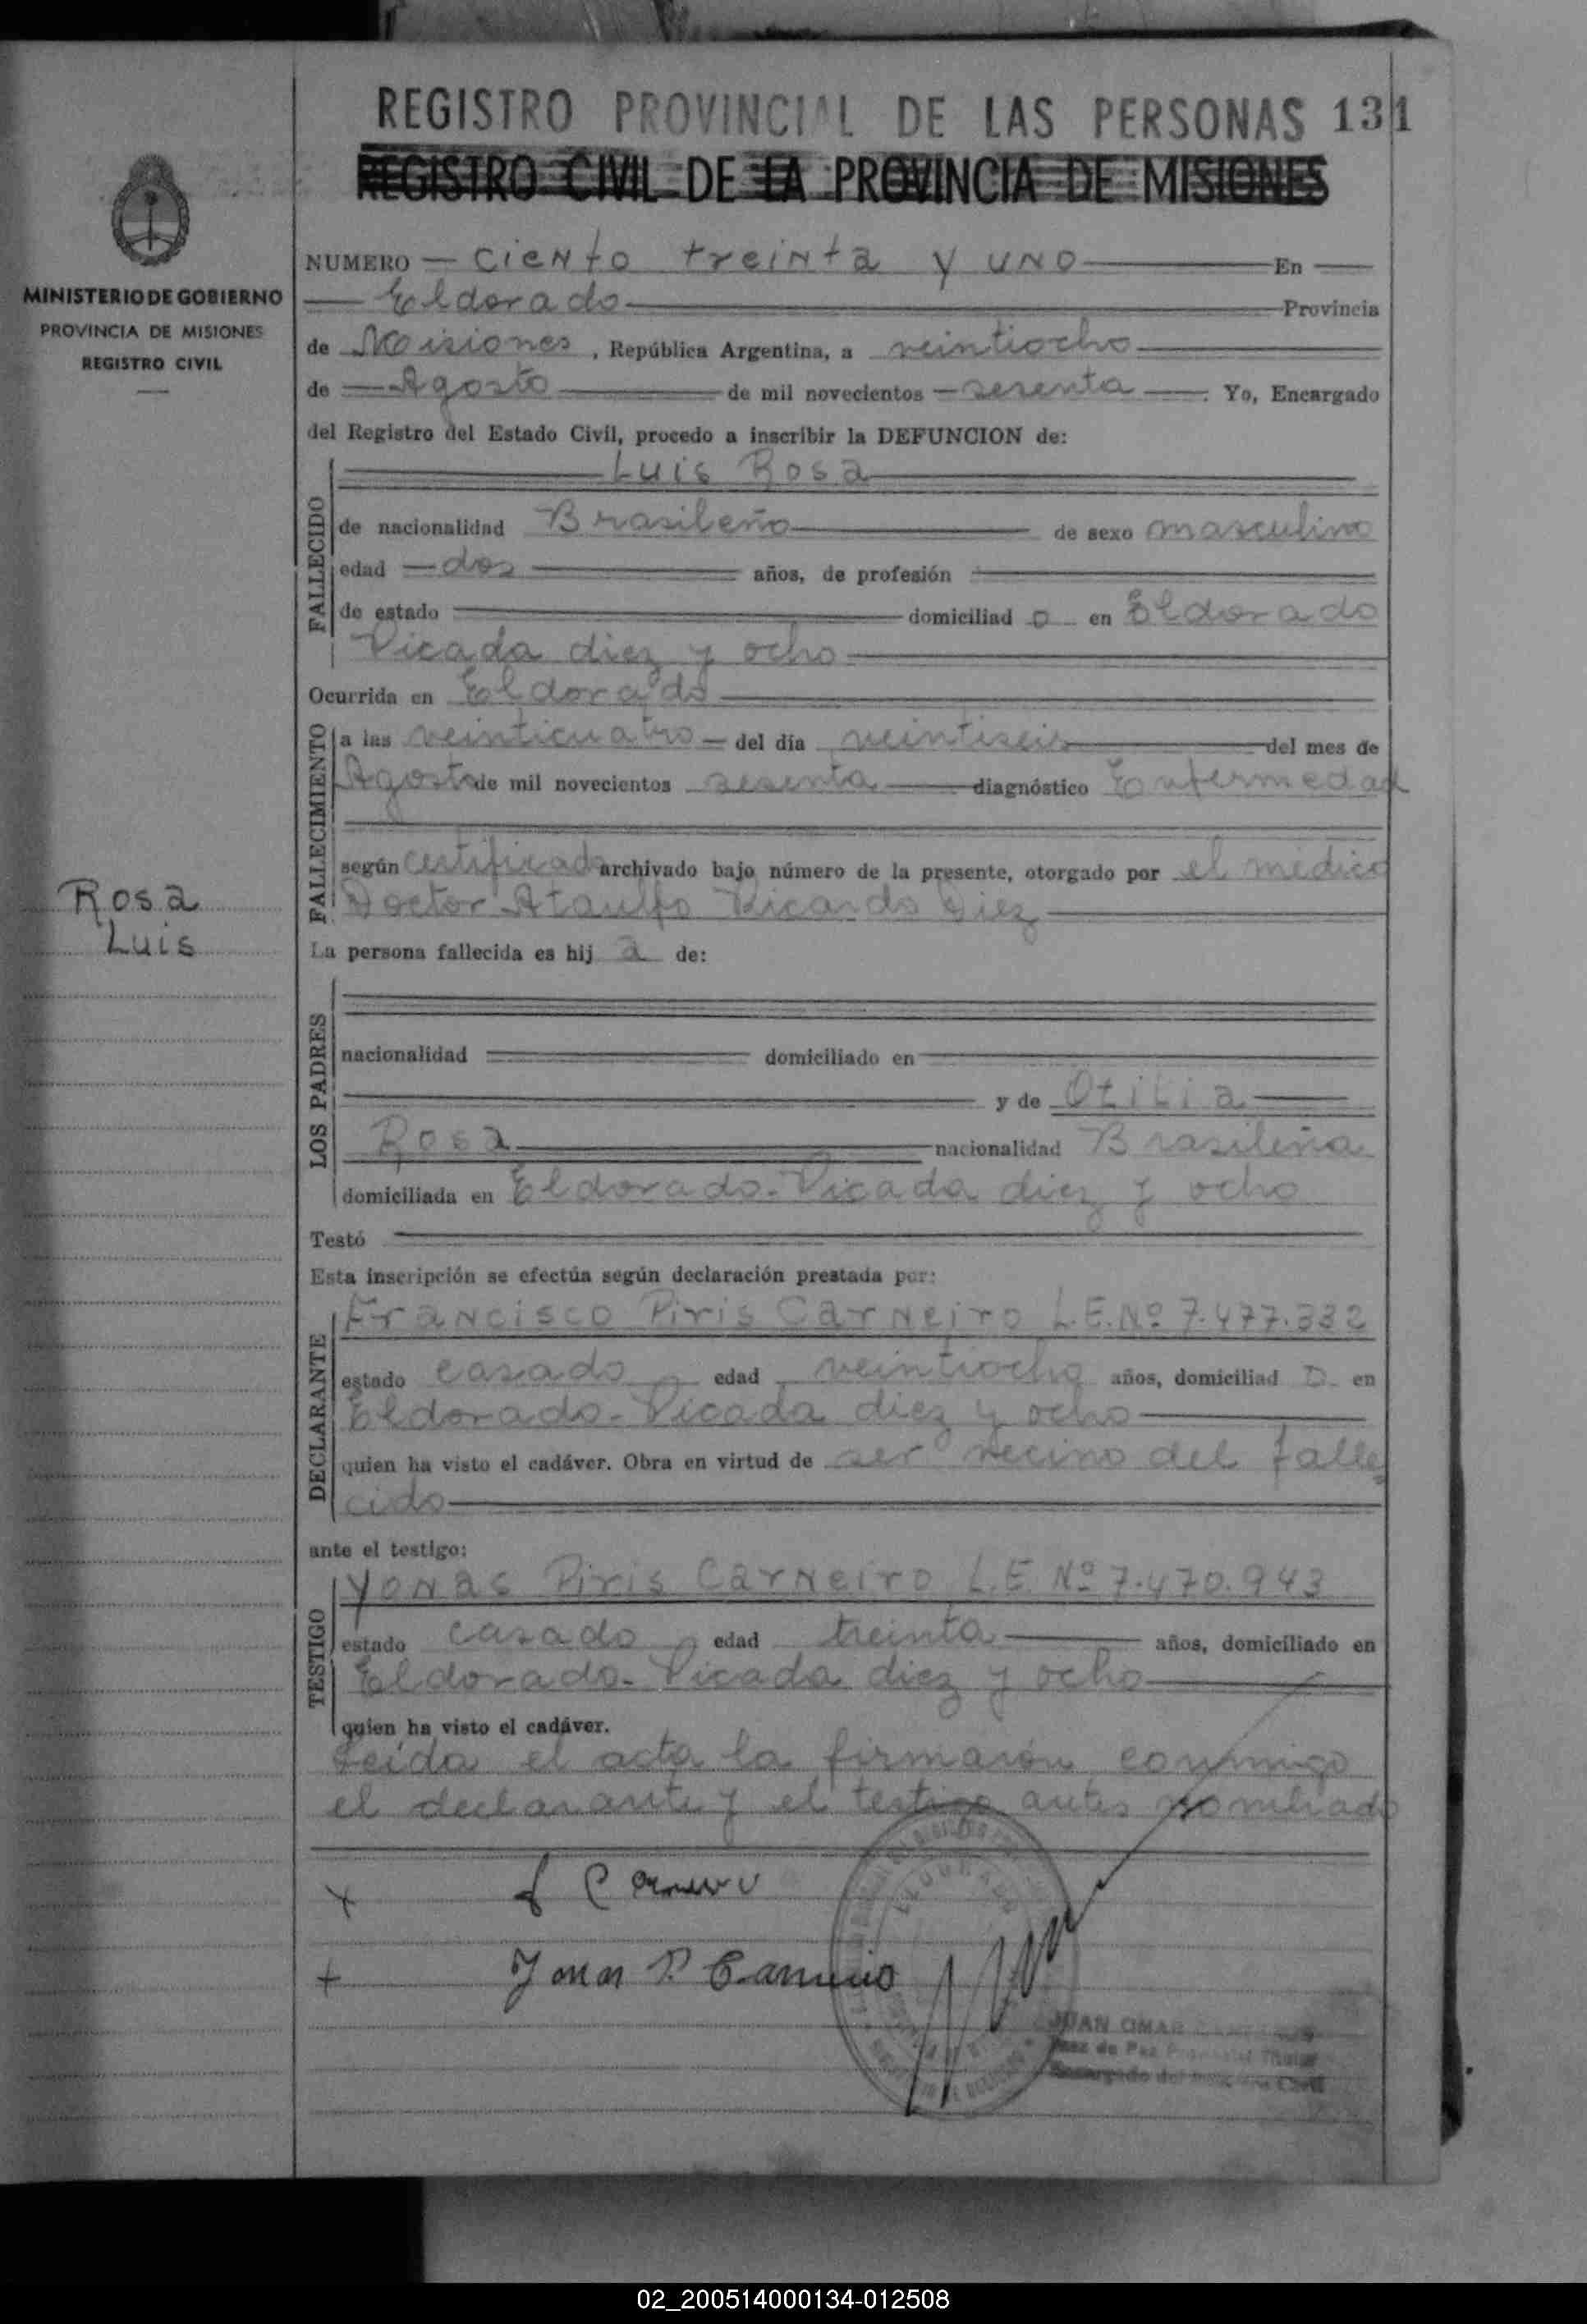 REGISTRO PROVINCIAL DE LAS PERSONAS 131
REGISTRO CIVIL DE LA PROVINCIA DE MISIONES
MINISTERIO DE GOBIERNO
PROVINCIA DE MISIONES
REGISTRO CIVIL
Rosa
Luis
NUMERO ciento treinta y uno En
Eldorado Provincia
de Misiones, República Argentina, a veintiocho
de Agosto de mil novecientos sesenta. Yo, Encargado
del Registro del Estado Civil, procedo a inscribir la DEFUNCION de:
FALLECIDO
Luis Rosa
de nacionalidad Brasileño de sexo masculino
edad dos años, de profesión
de estado domiciliad o en Eldorado
Picada diez y ocho
Ocurrida en Eldorado
FALLECIMIENTO
a las veinticuatro del día veintiseis del mes de
Agosto de mil novecientos sesenta diagnóstico Enfermedad
según certificado archivado bajo número de la presente, otorgado por el médico
Doctor Ataulfo Ricardo Diez
La persona fallecida es hij a de:
LOS PADRES
nacionalidad domiciliado en
y de Otilia
Rosa nacionalidad Brasileña
domiciliada en Eldorado-Picada diez y ocho
Testó
Esta inscripción se efectúa según declaración prestada por:
DECLARANTE
Francisco Piris Carneiro L.E.Nº 7.477.332
estado casado edad veintiocho años, domiciliad o en
Eldorado-Picada diez y ocho
quien ha visto el cadáver. Obra en virtud de ser vecino del falle
cido
ante el testigo:
TESTIGO
Yonas Piris Carneiro L.E. Nº 7.470.943
estado casado edad treinta años, domiciliado en
Eldorado-Picada diez y ocho
quien ha visto el cadáver.
Leída el acta la firmaron conmigo
el declarante y el testigo antes nombrado
x
+ Jonas P. Carneiro
JUAN OMAR
Juez de Paz
Encargado del
02_200514000134-012508